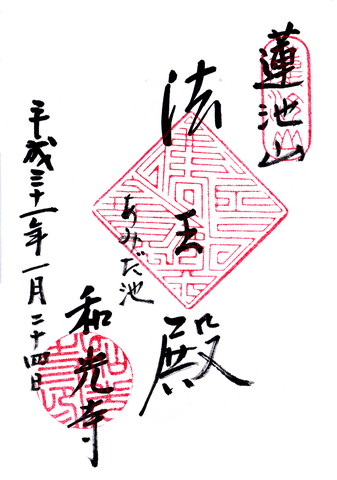 蓮池山
法王殿
あみだ池
和光寺
平成三十一年一月二十四日